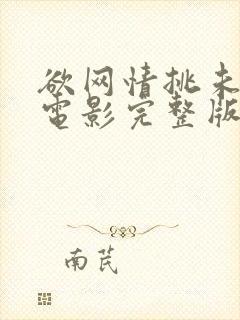 欲网情挑未
電影完整版
南芪